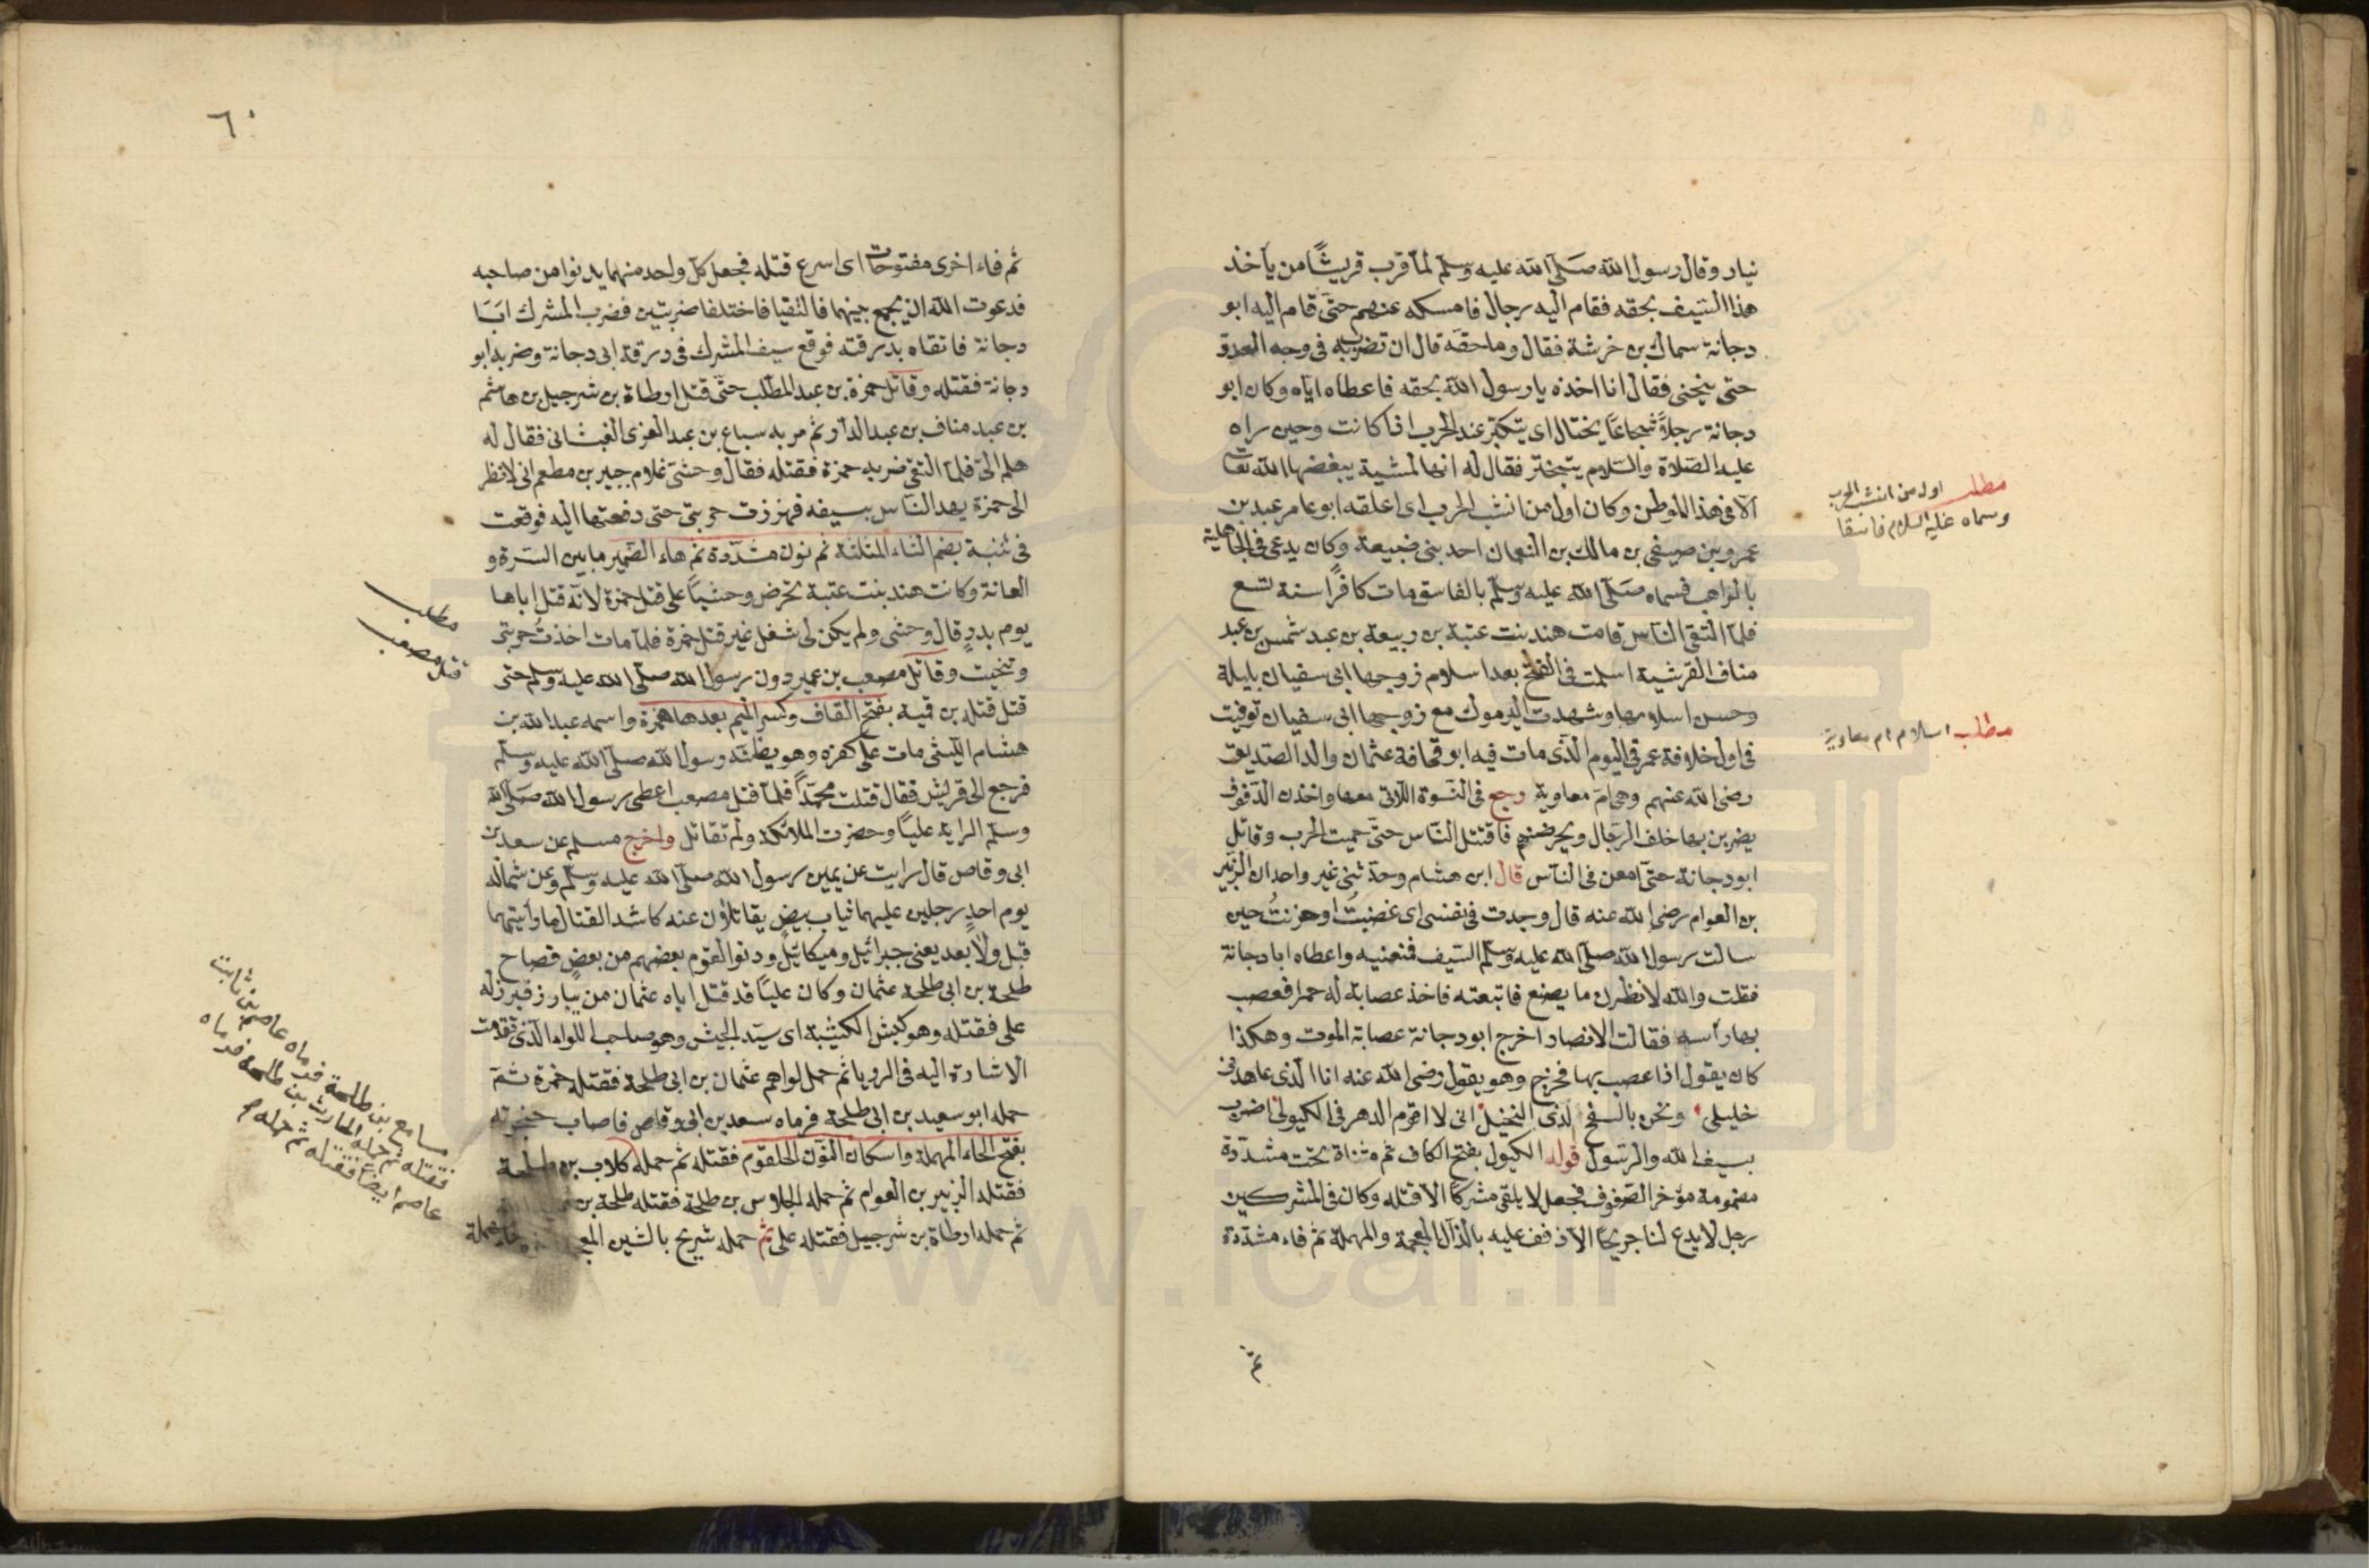 نيار وقال رسول الله صلى الله عليه وسلم لما قرب قريشا من يأخذ
هذا السيف بحقه فقام اليه رجال فامسكه عنهم حتى قام اليه ابو
دجانة سماك بن خرشة فقال وما حقه قال ان تضرب به في وجه العدو
حتى ينحنى فقال انا اخذه يا رسول الله بحقه فاعطاه اياه وكان ابو
دجانة رجلاً شجاعًا يختال اى يتكبر عند الحرب اذا كانت وحين راه
عليه الصلاة والسلام يتبختر فقال له انها لمشية يبغضها الله تعالى
الا في هذا الموطن وكان اول من انشب الحرب اى اعلقه ابو عامر عبد بن
عمرو بن صيفى بن مالك بن النعمان احد بنى ضبيعة وكان يدعى في الجاهلية
بالراهب فسماه صلى الله عليه وسلم بالفاسق مات كافرًا سنة تسع
فلما التقى الناس قامت هند بنت عتبة بن ربيعة بن عبد شمس بن عبد
مناف القرشية اسلمت في الفتح بعد اسلام زوجها ابى سفيان بليلة
وحسن اسلامها وشهدت اليرموك مع زوجها ابى سفيان توفيت
في اول خلافة عمر في اليوم الذى مات فيه ابو قحافة عثمان والد الصديق
رضى الله عنهم وهى ام معاوية رجع في النسوة اللاتى معها واخذن الدفوف
يضربن بها خلف الرجال ويحرضنهم فاقتتل الناس حتى حميت الحرب وقاتل
ابو دجانة حتى امعن في الناس قال ابن هشام وحدثنى غير واحد ان الزبير
بن العوام رضى الله عنه قال وجدت في نفسى اى غضبت او حزنت حين
سالت رسول الله صلى الله عليه وسلم السيف فمنعنيه واعطاه ابا دجانة
فقلت والله لانظرن ما يصنع فاتبعته فاخذ عصابة له حمرا فعصب
بها رأسه فقالت الانصار اخرج ابو دجانة عصابة الموت وهكذا
كان يقول اذا عصب بها فخرج وهو يقول رضى الله عنه انا الذى عاهدنى
خليلى ونحن بالسفح لدى النخيل انى لا اقوم الدهر في الكيول اضرب
بسيف الله والرسول قوله الكيول بفتح الكاف ثم مثناة تحت مشددة
مضمومة مؤخر الصفوف فجعل لا يلقى مشركًا الا قتله وكان في المشركين
رجل لا يدع لنا جريحًا الا ذفف عليه بالذال المعجمة والمهملة ثم فاء مشددة
ثم
مطلب اول من انشب الحرب
وسماه عليه السلام فاسقا
مطلب اسلام ام معاوية
٦٠
ثم فاء اخرى مفتوحات اى اسرع قتله فجعل كل واحد منهما يدنو من صاحبه
فدعوت الله ان يجمع بينهما فالتقيا فاختلفا ضربتين فضرب المشرك ابا
دجانة فاتقاه بدرقته فوقع سيف المشرك في درقة ابى دجانة وضربه ابو
دجانة فقتله وقاتل حمزة بن عبد المطلب حتى قتل ارطاة بن شرحبيل بن هاشم
بن عبد مناف بن عبد الدار ثم مر به سباع بن عبد العزى الغبشانى فقال له
هلم الىّ فلما التقى ضربه حمزة فقتله فقال وحشى غلام جبير بن مطعم انى لانظر
الى حمزة يهد الناس بسيفه فهززت حربتى حتى دفعتها اليه فوقعت
في ثنته بضم الثاء المثلثة ثم نون مشددة ثم هاء الضمير ما بين السرة و
العانة وكانت هند بنت عتبة تحرض وحشيا على قتل حمزة لانه قتل اباها
يوم بدر قال وحشى ولم يكن لى شغل غير قتل حمزة فلما مات اخذت حربتى
وتنحيت وقاتل مصعب بن عمير دون رسول الله صلى الله عليه وسلم حتى
قتل قتله بن قمية بفتح القاف وكسر الميم بعدها همزة واسمه عبد الله بن
هشام الليثى مات على كفره وهو يظنه رسول الله صلى الله عليه وسلم
فرجع الى قريش فقال قتلت محمدًا فلما قتل مصعب اعطى رسول الله صلى الله
وسلم الراية عليًا وحضرت الملائكة ولم تقاتل واخرج مسلم عن سعد بن
ابى وقاص قال رايت عن يمين رسول الله صلى الله عليه وسلم وعن شماله
يوم احد رجلين عليهما ثياب بيض يقاتلان عنه كاشد القتال ما رأيتهما
قبل ولا بعد يعنى جبرائيل وميكائيل ودنوا القوم بعضهم من بعض فصاح
طلحة بن ابى طلحة عثمان وكان عليًا قد قتل اباه عثمان من يبارز فبرز له
على فقتله وهو كبش الكتيبة اى سيد الجيش وهو صاحب اللواء الذى تقدمت
الاشارة اليه في الرويا ثم حمل لواهم عثمان بن ابى طلحة فقتله حمزة ثم
حمله ابو سعيد بن ابى طلحة فرماه سعد بن ابى وقاص فاصاب حنجرته
بفتح الحاء المهملة واسكان النون الحلقوم فقتله ثم حمله كلاب بن طلحة
فقتله الزبير بن العوام ثم حمله الجلاس بن طلحة فقتله طلحة بن
ثم حمله ارطاة بن شرحبيل فقتله على ثم حمله شريح بالشين المع
مطلب
قتل مصعب
مسامع بن طلحة فرماه عاصم بن ثابت
فقتله ثم حمله الحارث بن طلحة فرماه
عاصم ايضا فقتله ثم حمله
www.ical.ir